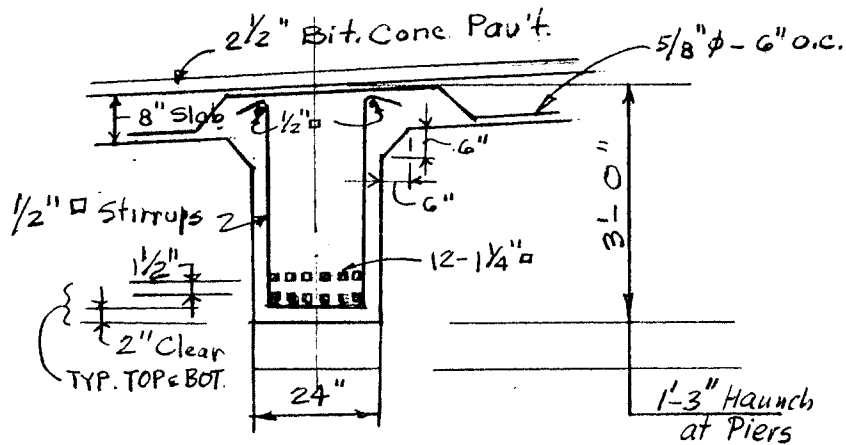 2 1/2" Bit. Conc Pav't.
5/8" ϕ - 6" o.c.
8" Slab
1/2" □
6"
6"
3'-0"
1/2" □ Stirrups
1 1/2"
12 - 1 1/4" □
2" Clear
TYP. TOP & BOT.
24"
1'-3" Haunch
at Piers